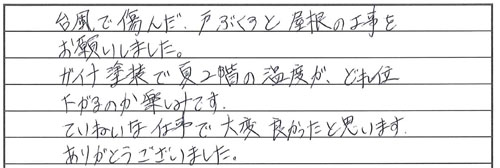 台風で傷んだ、戸ぶくろと屋根の工事を
お願いしました。
ガイナ塗装で夏2階の温度が、どれ位
下がるのか楽しみです。
ていねいな仕事で大変良かったと思います。
ありがとうございました。